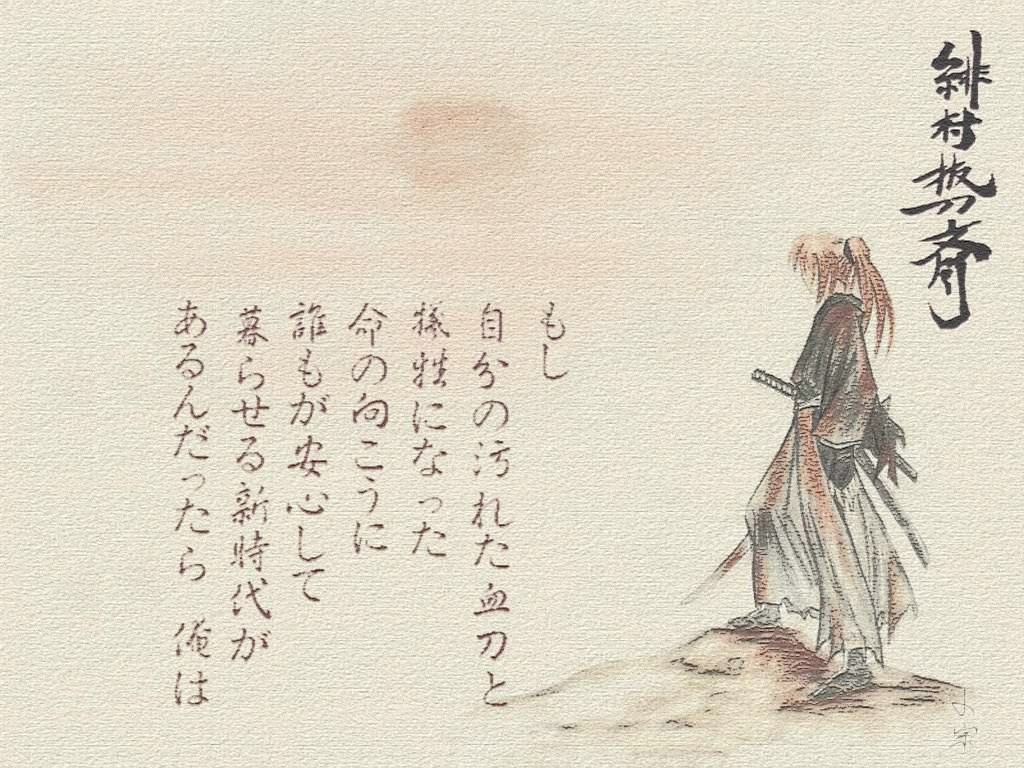 緋村抜刀斎
もし
自分の汚れた血刀と
犠牲になった
命の向こうに
誰もが安心して
暮らせる新時代が
あるんだったら 俺は